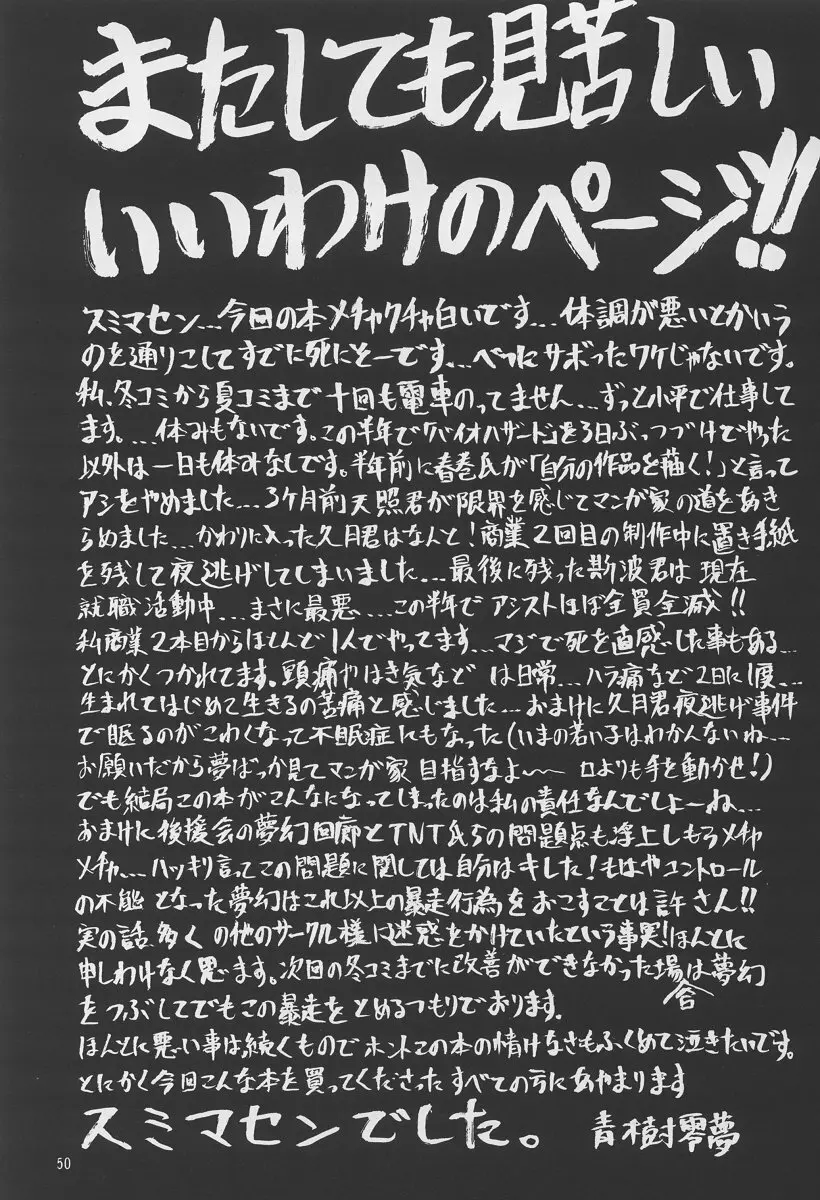 またしても見苦しい
いいわけのページ!!
スミマセン…今回の本メチャクチャ白いです…体調が悪いとかいう
のを通りこしてすでに死にそーです…べつにサボったワケじゃないです。
私、冬コミから夏コミまで十回も電車のってません…ずっと小平で仕事して
ます。…休みもないです。この半年で「バイオハザード」を3日ぶっつづけでやった
以外は一日も休みなしです。半年前に春巻氏が「自分の作品を描く!」と言って
アシをやめました…3ケ月前天照君が限界を感じてマンガ家の道をあき
らめました…かわりに入った久月君はなんと!商業2回目の制作中に置き手紙
を残して夜逃げしてしまいました…最後に残った斯波君は現在
就職活動中…まさに最悪…この半年でアシストほぼ全員全滅!!
私商業2本目からほとんど1人でやってます…マジで死を直感した事もある…
とにかくつかれてます。頭痛やはき気などは日常…ハラ痛など2日に1度…
生まれてはじめて生きるの苦痛と感じました…おまけに久月君夜逃げ事件
で眠るのがこわくなって不眠症にもなった(いまの若い子はわかんないね…
お願いだから夢ばっか見てマンガ家目指すなよ〜〜口よりも手を動かせ!)
でも結局この本がこんなになってしまったのは私の責任なんでしょーね…
おまけに後援会の夢幻回廊とTNT氏らの問題点も浮上しもうメチャ
メチャ…ハッキリ言ってこの問題に関しては自分はキした!もはやコントロール
の不能となった夢幻はこれ以上の暴走行為をおこすことは許さん!!
実の話多くの他のサークル様に迷惑をかけていたという事実!ほんとに
申しわけなく思います。次回の冬コミまでに改善ができなかった場合は夢幻
をつぶしてでもこの暴走をとめるつもりでおります。
ほんとに悪い事は続くもので ホントこの本の情けなさもふくめて泣きたいです。
とにかく今回こんな本を買ってくださったすべての方にあやまります
スミマセンでした。 青樹零夢
50